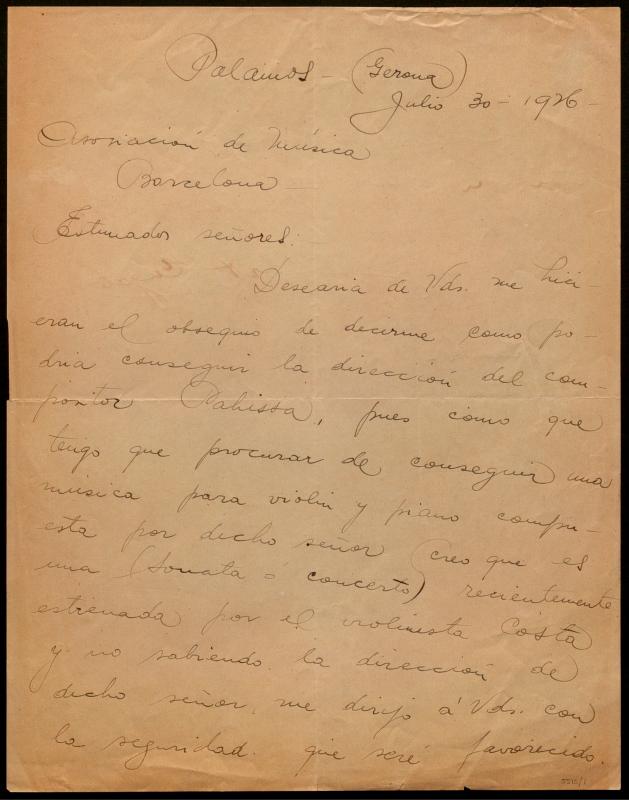 Palamos - (Gerona)
Julio 30 - 1926 -
Asociación de Música
Barcelona
Estimados señores:
Desearia de Vds. me hici-
eran el obsequio de decirme como po-
dria conseguir la dirección del com-
positor Pahissa, pues como que
tengo que procurar de conseguir una
música para violin y piano compu-
esta por dicho señor (creo que es
una (Sonata ó concerto) recientemente
estrenada por el violinista Costa
y no sabiendo la dirección de
dicho señor, me dirijo á Vds. con
la seguridad que seré favorecido.
5515/1